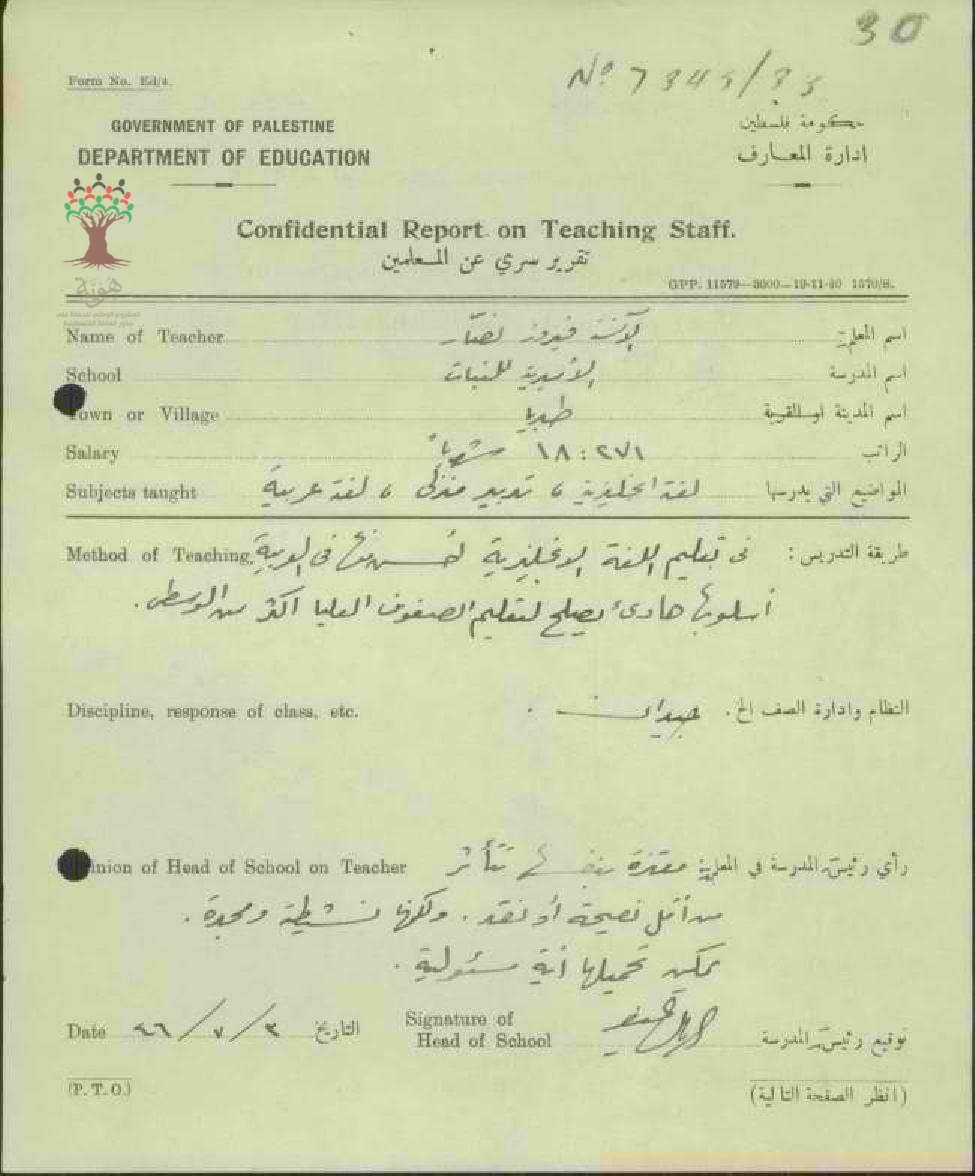 30
Nº 7343/33
Form No. Ed/4.
GOVERNMENT OF PALESTINE
حكومة فلسطين
DEPARTMENT OF EDUCATION
ادارة المعارف
Confidential Report on Teaching Staff.
تقرير سري عن المعلمين
GPP. 11579—3000—19-11-40 1570/S.
هوية
Name of Teacher الآنسة فيروز نصّار اسم المعلمة
School الأميرية للبنات اسم المدرسة
Town or Village طبريا اسم المدينة او القرية
Salary ١٨:٢٧١ شهرياً الراتب
Subjects taught لغة انجليزية ، تدبير منزلي ، لغة عربية المواضيع التي يدرسها
Method of Teaching. في تعليم اللغة الانجليزية أحسن منها في العربية طريقة التدريس :
أسلوبها هادئ يصلح لتعليم الصفوف العليا اكثر من الوسطى .
Discipline, response of class, etc. جيدان . النظام وادارة الصف الخ .
Opinion of Head of School on Teacher معتزة بنفسها تتأثر رأي رئيسة المدرسة في المعلمة
من أقل نصيحة أو نقد . ولكنها نشيطة ومجدة .
يمكن تحميلها أية مسئولية .
Date ٤٦/٧/٣ التاريخ
Signature of
Head of School توقيع رئيسة المدرسة
(P. T. O.)
(انظر الصفحة التالية)